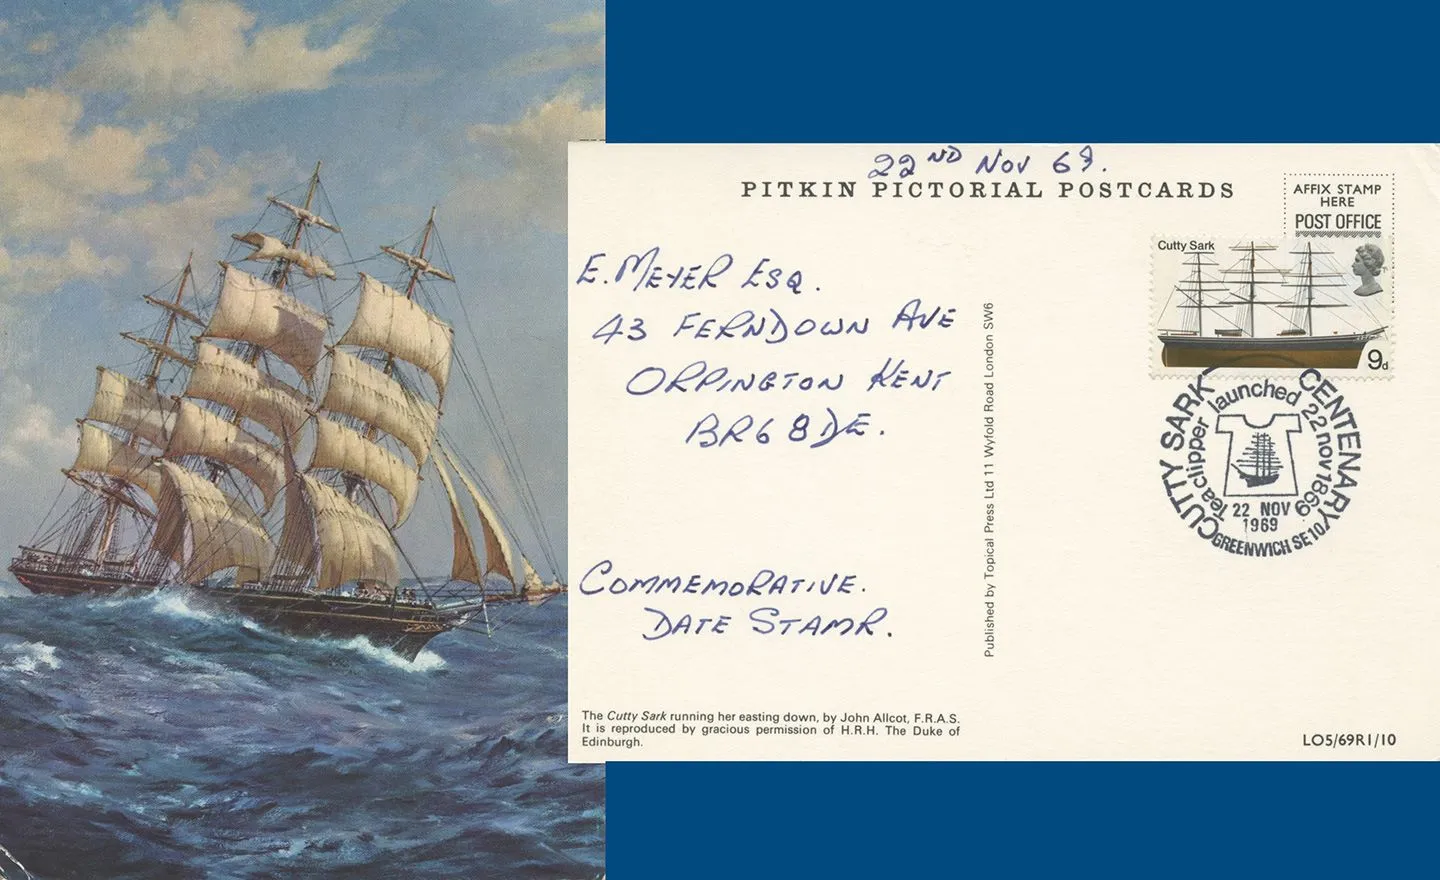 22ND NOV 69.
PITKIN PICTORIAL POSTCARDS
AFFIX STAMP
HERE
POST OFFICE
Cutty Sark
9d
E. MEYER ESQ.
43 FERNDOWN AVE
ORPINGTON KENT
BR6 8DE.
COMMEMORATIVE.
DATE STAMP.
Published by Topical Press Ltd 11 Wyfold Road London SW6
CUTTY SARK CENTENARY
Tea clipper launched 22 nov 1869
22 NOV
1969
GREENWICH SE10
The Cutty Sark running her easting down, by John Allcot, F.R.A.S.
It is reproduced by gracious permission of H.R.H. The Duke of
Edinburgh.
LO5/69R1/10